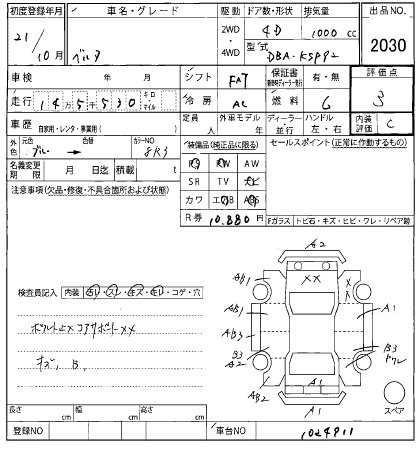 初度登録年月 車名・グレード 駆動 ドア数・形状 排気量 出品No.
21/10月 ベルタ 2WD・4WD 4D 1000cc 2030
型式 DBA-KSP92
車検 年 月 シフト FAT 保証書 有・無 評価点
走行 14万5千530 キロ マイル 冷房 AC 燃料 G 3
車歴 自家用・レンタ・事業用( ) 定員 人 外車モデル 年 ディーラー・並行 ハンドル 左・右 内装評価 C
外色 元色 ブルー → 色替 カラーNO 8R3 装備品(純正品に限る) セールスポイント(正常に作動するもの)
名義変更期限 月 日迄 積載 t PS PW AW
注意事項(欠品・修復・不具合箇所および状態) SR TV ナビ
カワ エアB ABS
R券 10,880円
Fガラス トビ石・キズ・ヒビ・ワレ・リペア跡
検査員記入 内装 キレ・スレ・キズ・ヨレ・コゲ・穴
A2
AB1
XX
X
X
AB1
A1
AB3
B3
A2
B3
ワレ
キズ、B.
AB2
A1
A1
スペア
長さ cm 幅 cm 高さ cm
登録NO 車台NO 1024911